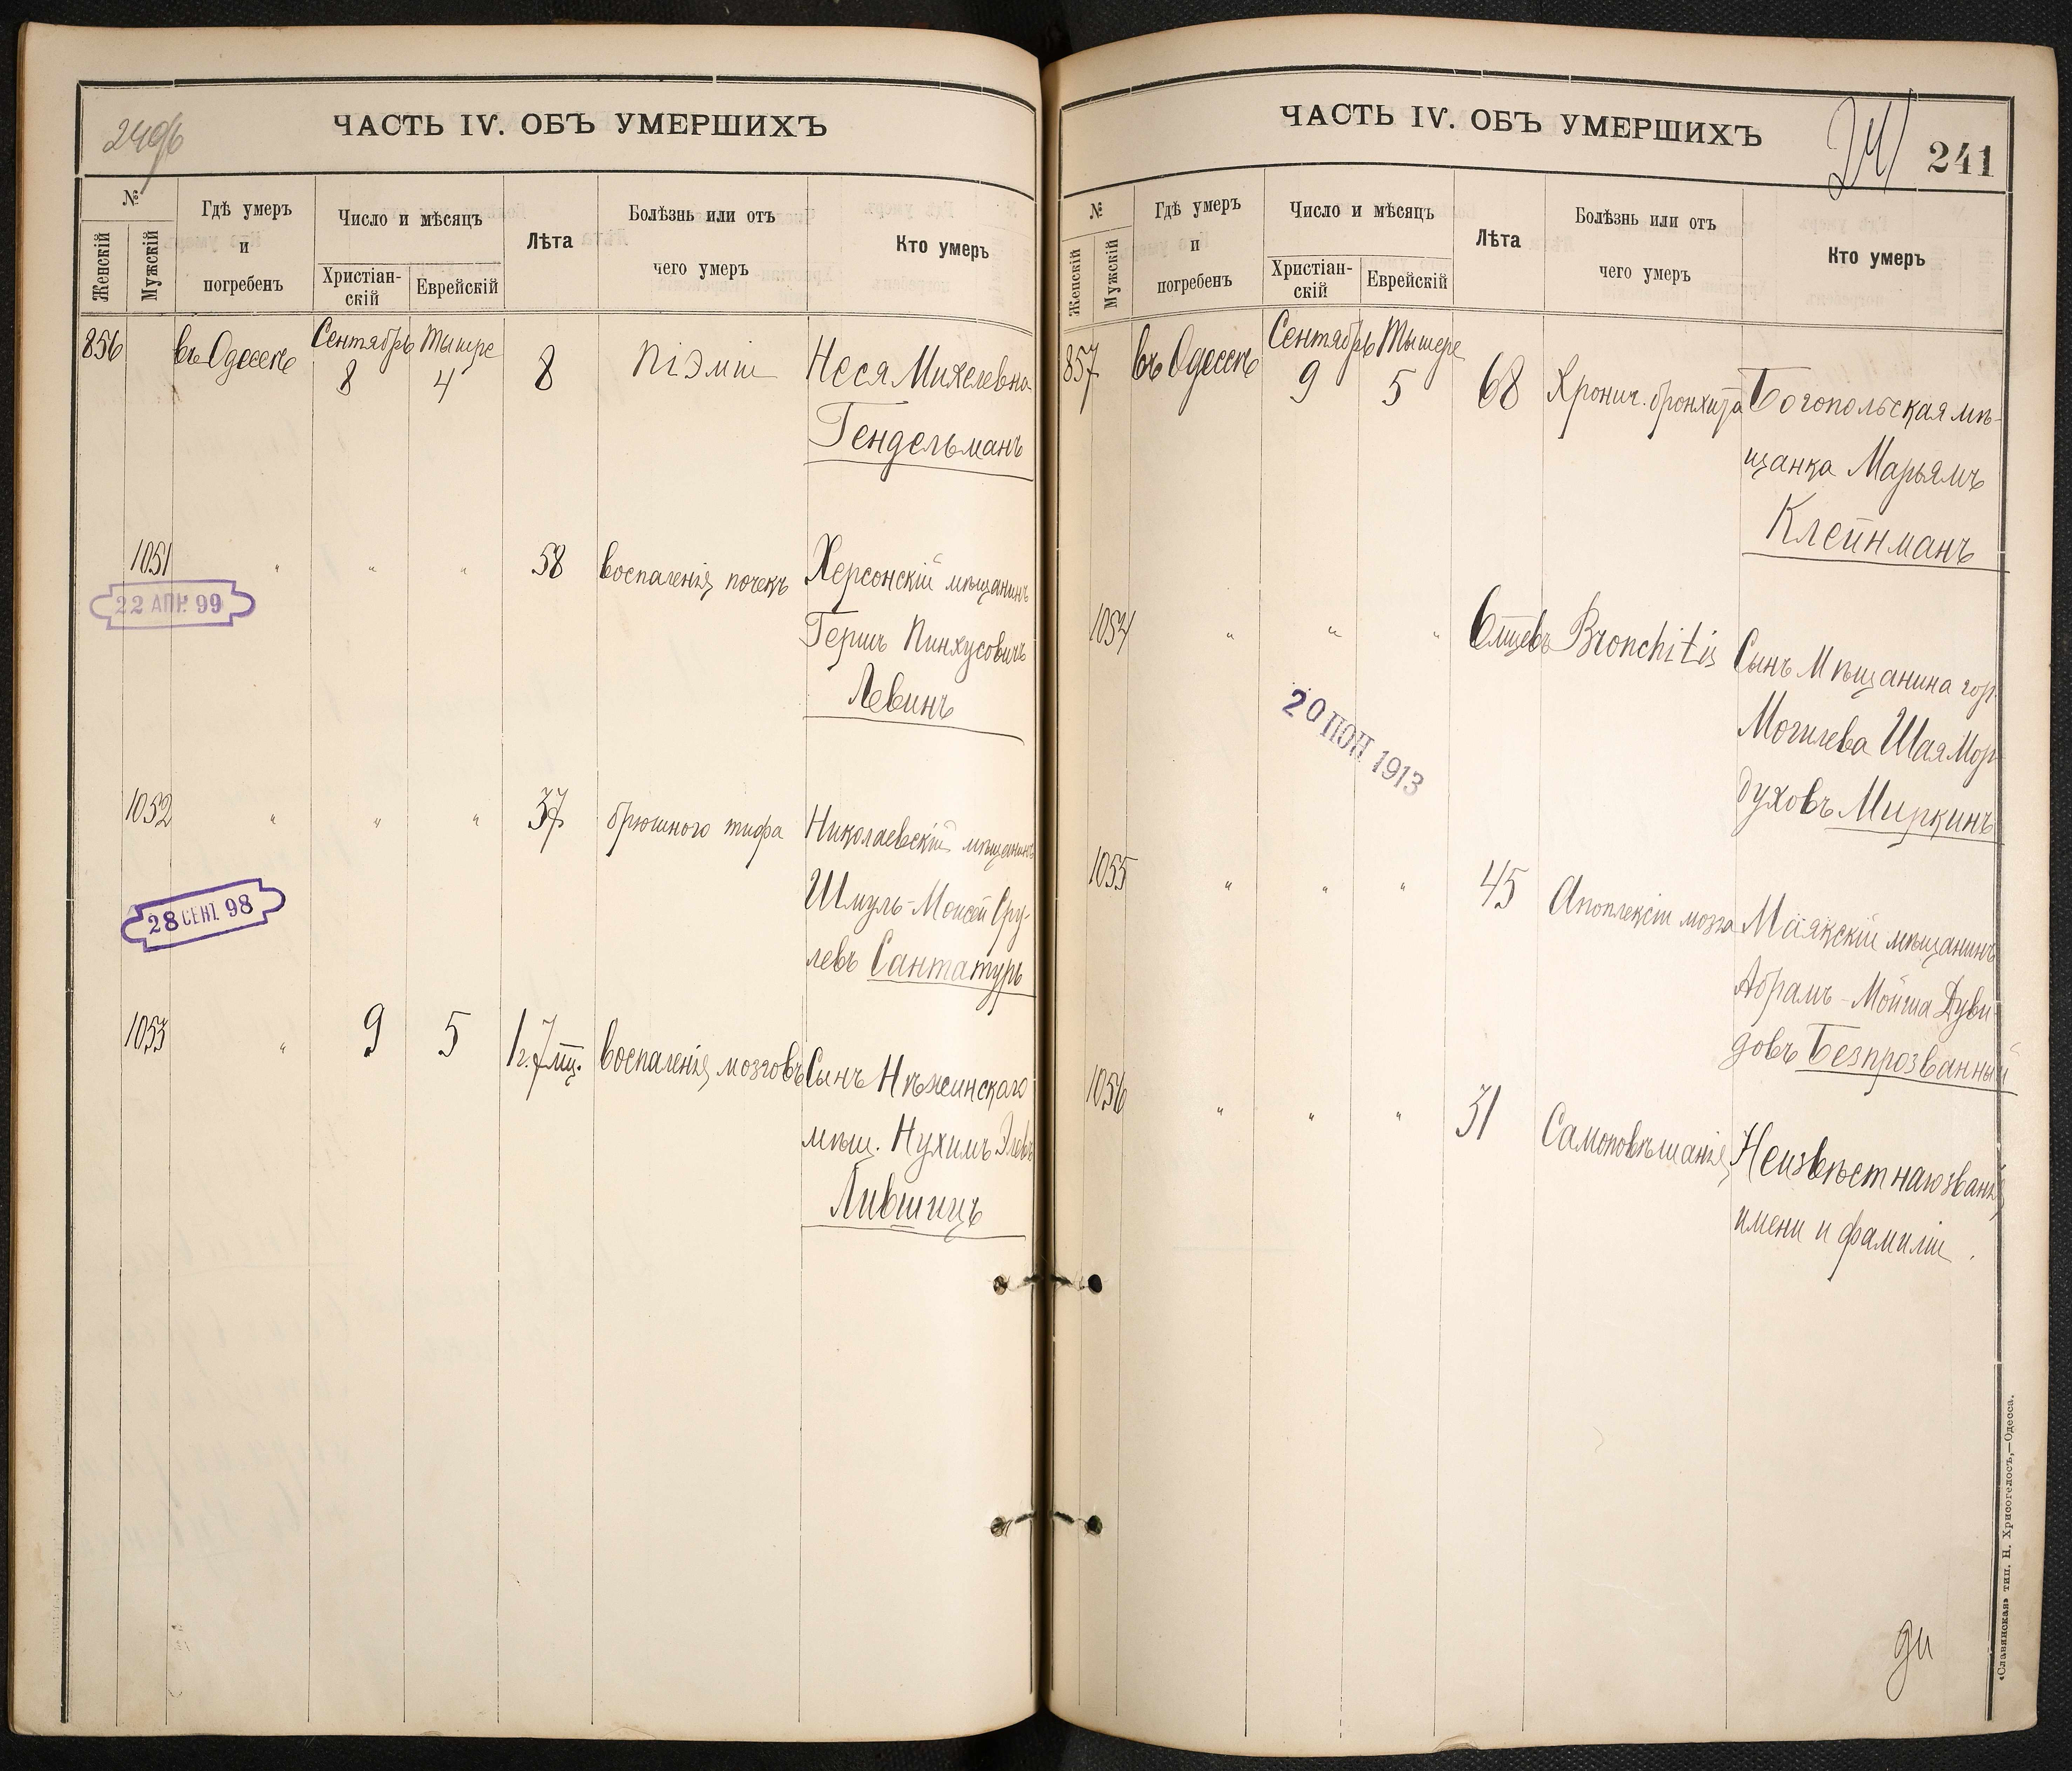 2496
ЧАСТЬ IV. ОБЪ УМЕРШИХЪ
№
Женскій
Мужскій
Гдѣ умеръ
и
погребенъ
Число и мѣсяцъ
Христіан-
скій
Еврейскій
Лѣта
Болѣзнь или отъ
чего умеръ
Кто умеръ
856 въ Одессѣ Сентябрь 8 Тышре 4 8 Піэміи Неся Михелевна
Гендельманъ
1051 " " " 58 воспаленія почекъ Херсонскій мѣщанинъ
22 АПР. 99
Гершъ Пинхусовичъ
Левинъ
1052 " " " 37 брюшного тифа Николаевскій мѣщанинъ
Шмуль-Моисей Сру-
28 СЕНТ. 98
левъ Сантатуръ
1053 " 9 5 1 г. 7 мц. воспаленія мозговъ Сынъ Нѣжинскаго
мѣщ. Нухимъ
Лившицъ
ЧАСТЬ IV. ОБЪ УМЕРШИХЪ
241
241
№
Женскій
Мужскій
Гдѣ умеръ
и
погребенъ
Число и мѣсяцъ
Христіан-
скій
Еврейскій
Лѣта
Болѣзнь или отъ
чего умеръ
Кто умеръ
857 въ Одессѣ Сентябрь 9 Тышре 5 68 Хронич. бронхита Богопольская мѣ-
щанка Марьямъ
Клейнманъ
1054 " " " 6 мцевъ Bronchitis Сынъ Мѣщанина гор.
20 1913
Могилева Шая Мор-
духовъ Миркинъ
1055 " " " 45 Апоплексіи мозга Маякскій мѣщанинъ
Абрамъ-Мойша Дуви-
довъ Безпрозванный
1056 " " " 31 Самоповѣшанія Неизвѣстнаго званія
имени и фамиліи.
«Славянская» тип. Н. Хрисогелосъ,—Одесса.